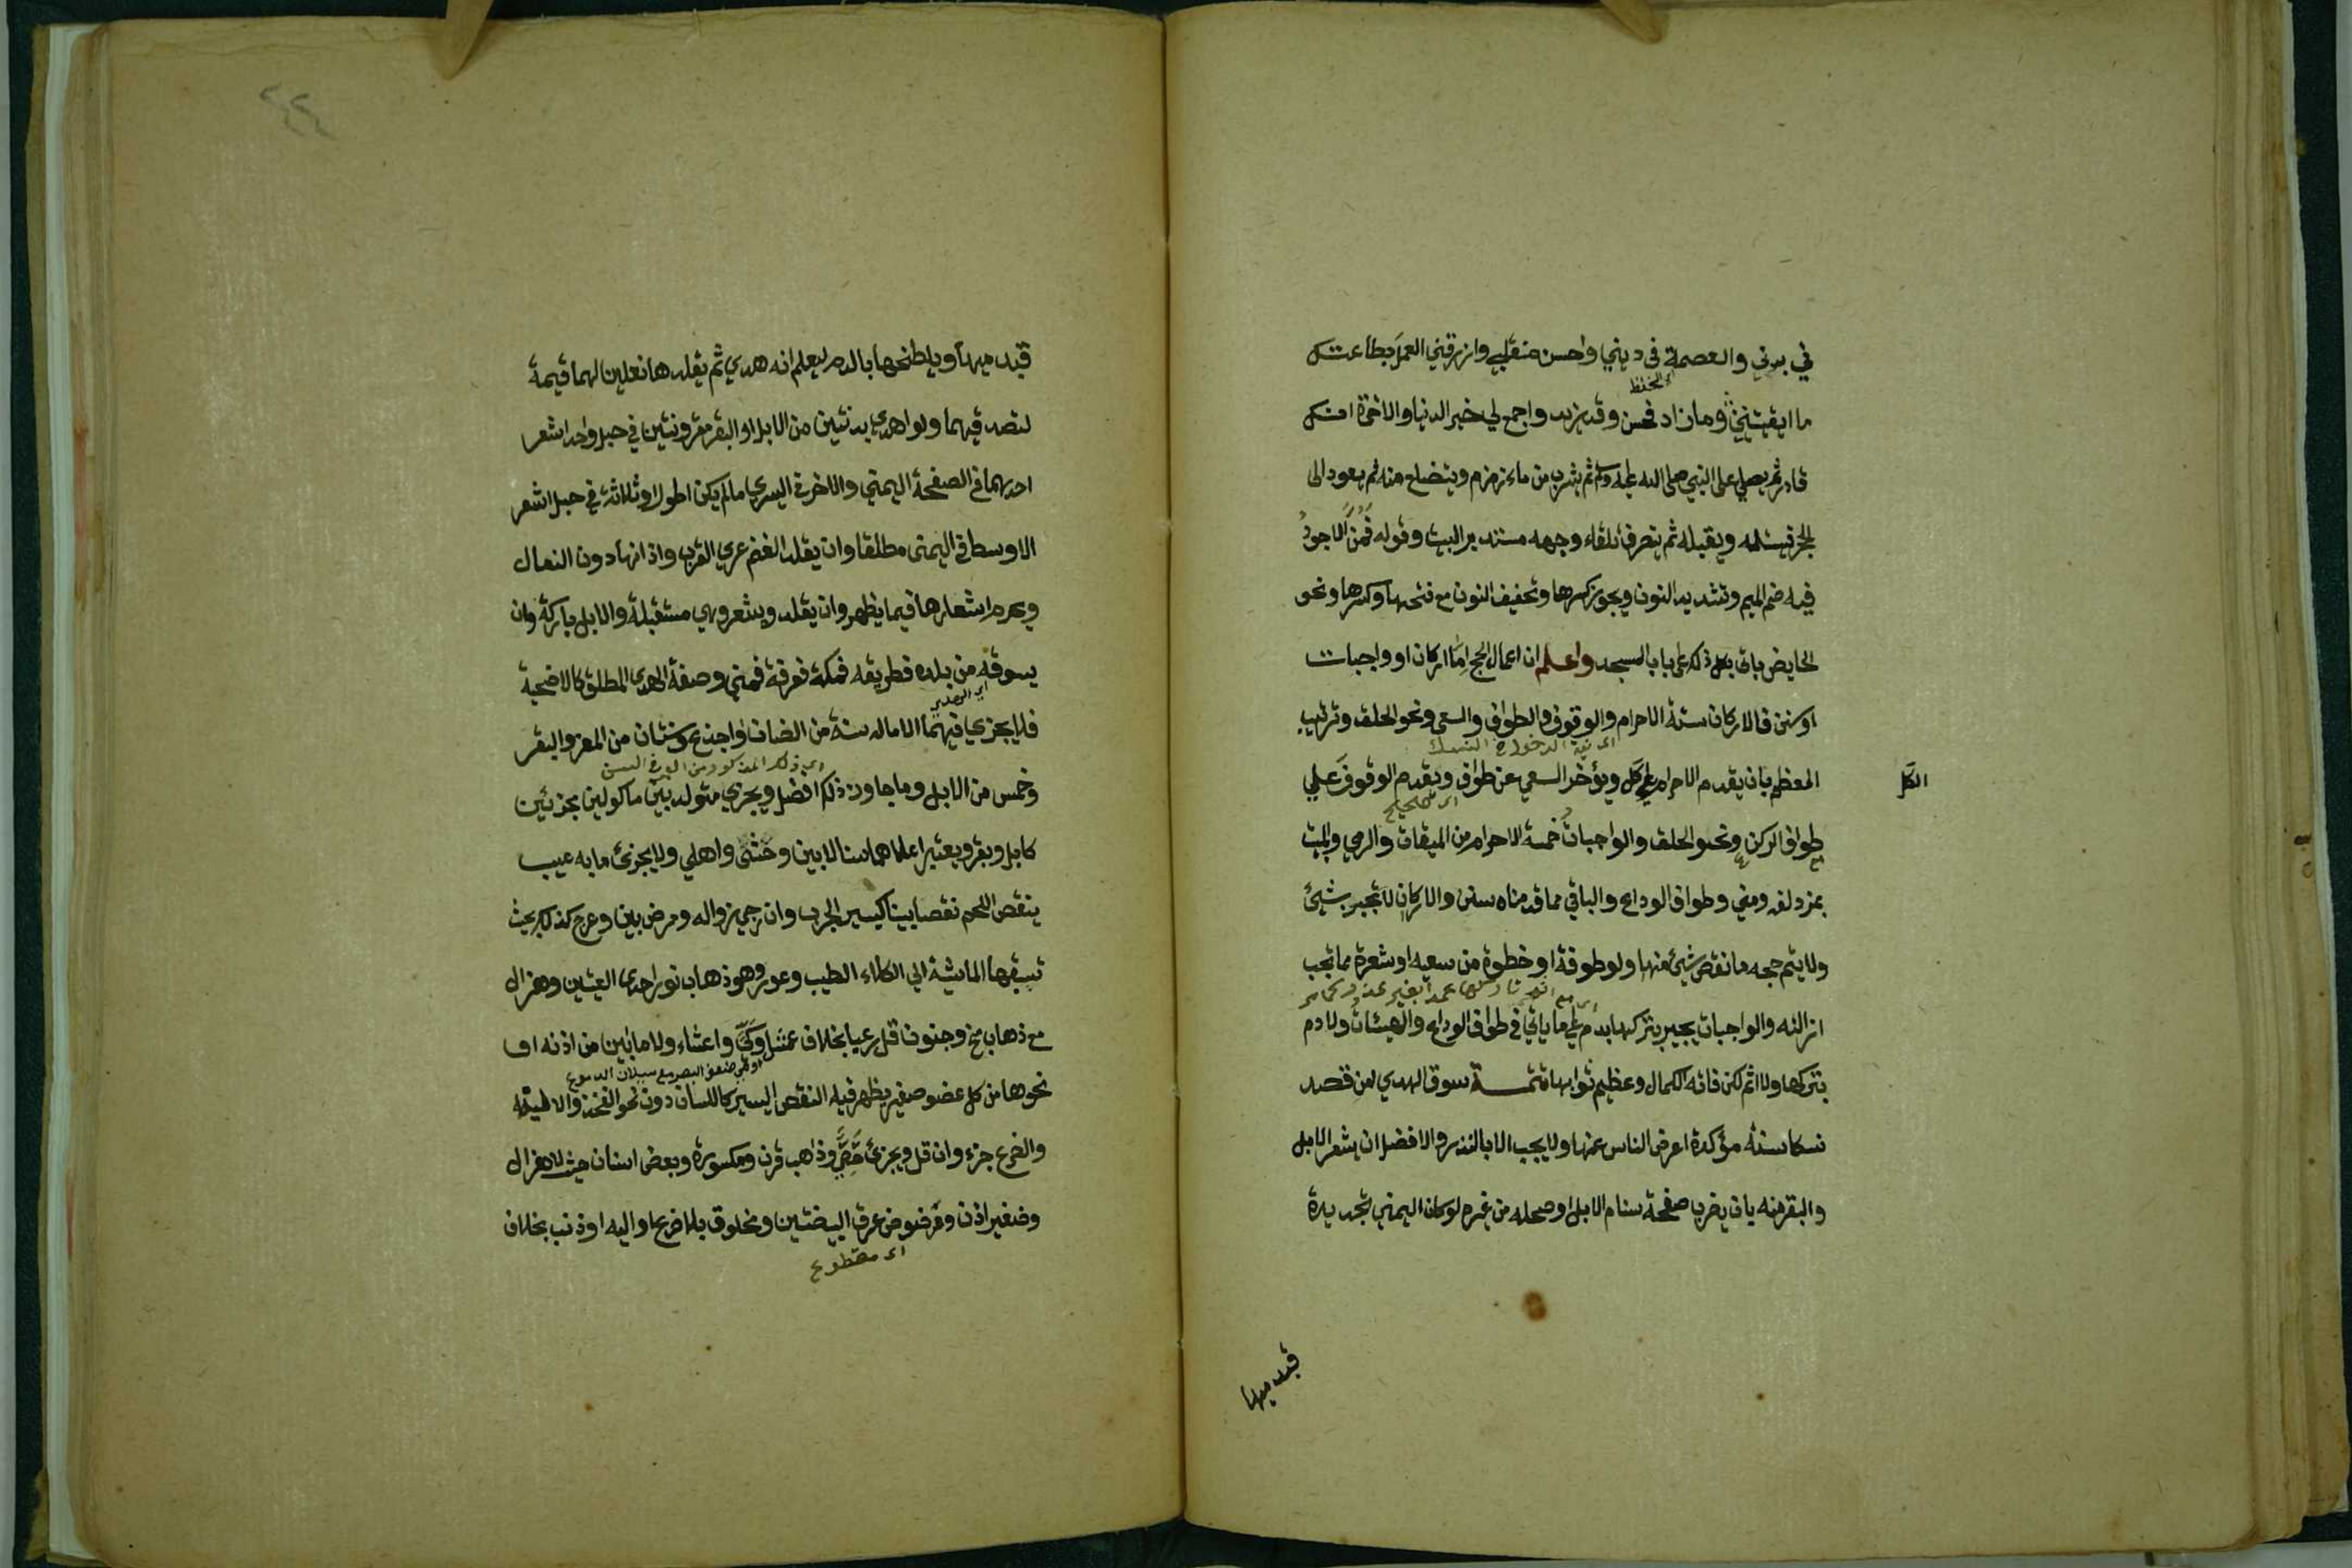 في بدني والعصمة في ديني واحسن منقلبي وارزقني العمل بطاعتك
ما ابقيتني وما زاد فحسن وقد يزيد واجمع لي خير الدنيا والاخرة انك
قادر ثم يصلي على النبي صلى الله عليه وسلم ثم يشرب من ماء زمزم ويتضلع منه ثم يعود الى
الحجر فيستلمه ويقبله ثم ينصرف تلقاء وجهه مستدبر البيت وقوله فمن الاجود
فيه ضم الميم وتشديد النون ويجوز كسرها وتخفيف النون مع فتحها وكسرها ونحو
الحايض ياتي بكل ذلك على باب المسجد واعلم ان اعمال الحج اما اركان او واجبات
او سنن فالاركان ستة الاحرام والوقوف والطواف والسعي ونحو الحلق وترتيب
اى نية الدخول في النسك
المعظم بان يقدم الاحرام على كل ويؤخر السعي عن طواف ويقدم الوقوف علي
الكل
طواف الركن ونحو الحلق والواجبات خمسة الاحرام من الميقات والرمي والمبيت
بمزدلفه ومني وطواف الوداع والباقي مما قدمناه سنن والاركان لا تجبر بشيئ
ولا يتم حجه ما نقص شيئ منها ولو طوفة او خطوة من سعيه او شعرة مما تجب
ازالته والواجبات يجبر بتركها بدم على ما ياتي في طواف الوداع والهيئات ولا دم
بتركها ولا اثم لكن فاته الكمال وعظيم ثوابها تتمة سوق الهدي لمن قصد
نسكا سنة مؤكدة اعرض الناس عنها ولا يجب الا بالنذر والافضل ان يشعر الابل
والبقر منه بان يضرب صفحة سنام الابل او محله من غيره لو كان اليمني بحديدة
قيدميها
٤٤
قيدميها ويلطخها بالدم ليعلم انه هدي ثم يقلدها نعلين لهما قيمة
ليتصدق بهما ولو اهدي بدنتين من الابل او البقر مقرونتين في حبل واحد اشعر
احدهما في الصفحة اليمني والاخر في اليسري ما لم يكن اطول او ثلاثة في حبل اشعر
الاوسط في اليمنى مطلقا وان يقلد الغنم عري القرب واذانها دون النعال
ويحرم اشعارها فيما يظهر وان يقلد ويشعر وهي مستقبلة والابل باركة وان
يسوقه من بلده فطريقه فمكة فعرفة فمني وصفة الهدي المطلق كالاضحية
فلا يجزي فيهما الا ما له سنة من الضان او اجذع وسنتان من المعز والبقر
اى ذلك المذكور من البلوغ السن
وخمس من الابل وما جاوز ذلك افضل ويجزي متولد بين ماكولين يجزئين
كابل وبقر ويعتبر اعلاهما سنا لابين وحشي واهلي ولا يجزئ ما به عيب
ينقص اللحم نقصا بينا كيسير الجرب وان رجي زواله ومرض بين وعرج كذلك بحيث
تسبقها الماشية الي الكلاء الطيب وعور وهو ذهاب نور احدى العينين وهزال
مع ذهاب مخ وجنون اقل رعيا بخلاف عمش وكي واعشاء ولا ما ابين من اذنه او
او هي ضعف البصر مع سيلان الدموع
نحوها من كل عضو صغير يظهر فيه النقص اليسير كاللسان دون نحو الفخذ والالية
والضرع جزء وان قل ويجزئ خصي وذاهب قرن ومكسورة وبعض اسنان حيث لا هزال
وصغير اذن ومرضوض عرق البيضتين ومخلوق بلا ضرع او اليه او ذنب بخلاف
اى مقطوع